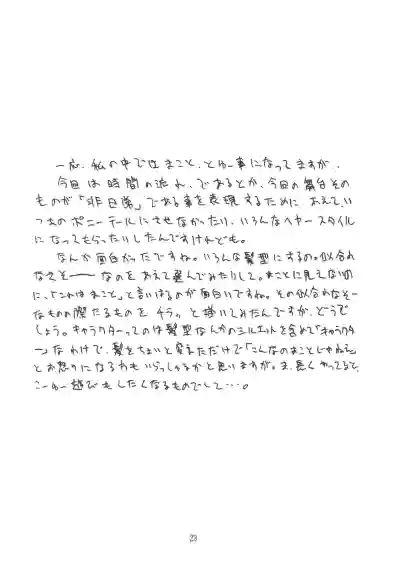 一応、私の中ではまこと、とゆー事になってますが、
今回は時間の流れ、であるとか、今回の舞台その
ものが「非日常」である事を表現するために あえて、い
つものポニーテールにさせなかったり、いろんなヘヤースタイル
になってもらったりしたんですけれども。
なんか面白かったですね。いろんな髪型にするの。似合わ
なさそーーなのをあえて選んでみたりして。まことに見えないの
に、「これはまこと」と言いはるのが面白いですね。その似合わなそー
なものの際たるものを チラッと描いてみたんですが、どうで
しょう。キャラクターってのは髪型なんかのシルエットを含めて「キャラクタ
ー」なわけで、髪をちょいと変えただけで「こんなのまことじゃねえ」
とお怒りになる方もいらっしゃるかと思いますが。ま、長くやってると、
こーゆー遊びもしたくなるものでして…。
23